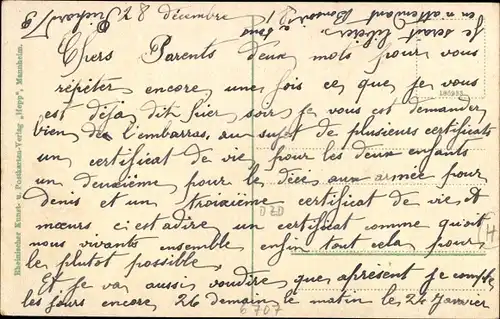 28 décembre
Chers Parents deux mots pour vous
répiter encore une fois ce que je vous
est déja dit hier soir je vous est demander
bien de l'embarras, au sujet de plusieurs certificats
un certificat de vie pour les deux enfants
un deuxième pour le décé aux armée pour
denis et un troixieme certificat de vie et
mœurs c'est adire un certificat comme quoit
nous vivants ensemble enfin tout cela pour
le plutot possible
Et je va aussi voudire que apresent je compte
les jours encore 26 demain le matin le 24 janvier
je serait libérer
en attendant
Rheinischer Kunst- u. Postkarten-Verlag „Hepp", Mannheim.
DZD
H
6707